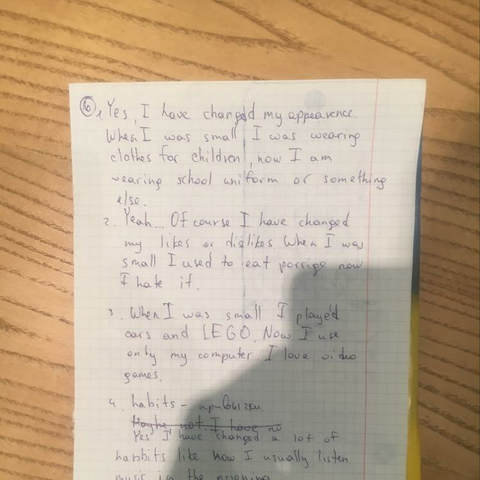 6 1 Yes, I have changed my appearence.
When I was small I was wearing
clothes for children, now I am
wearing school uniform or something
else.
2. Yeah... Of course I have changed
my likes or dislikes When I was
small I used to eat porrige now
I hate it.
3. When I was small I played
cars and LEGO. Now I use
only my computer. I love video
games.
4. habits - привычки
Maybe not I have no
Yes I have changed a lot of
habbits like now I usually listen
music in the morning